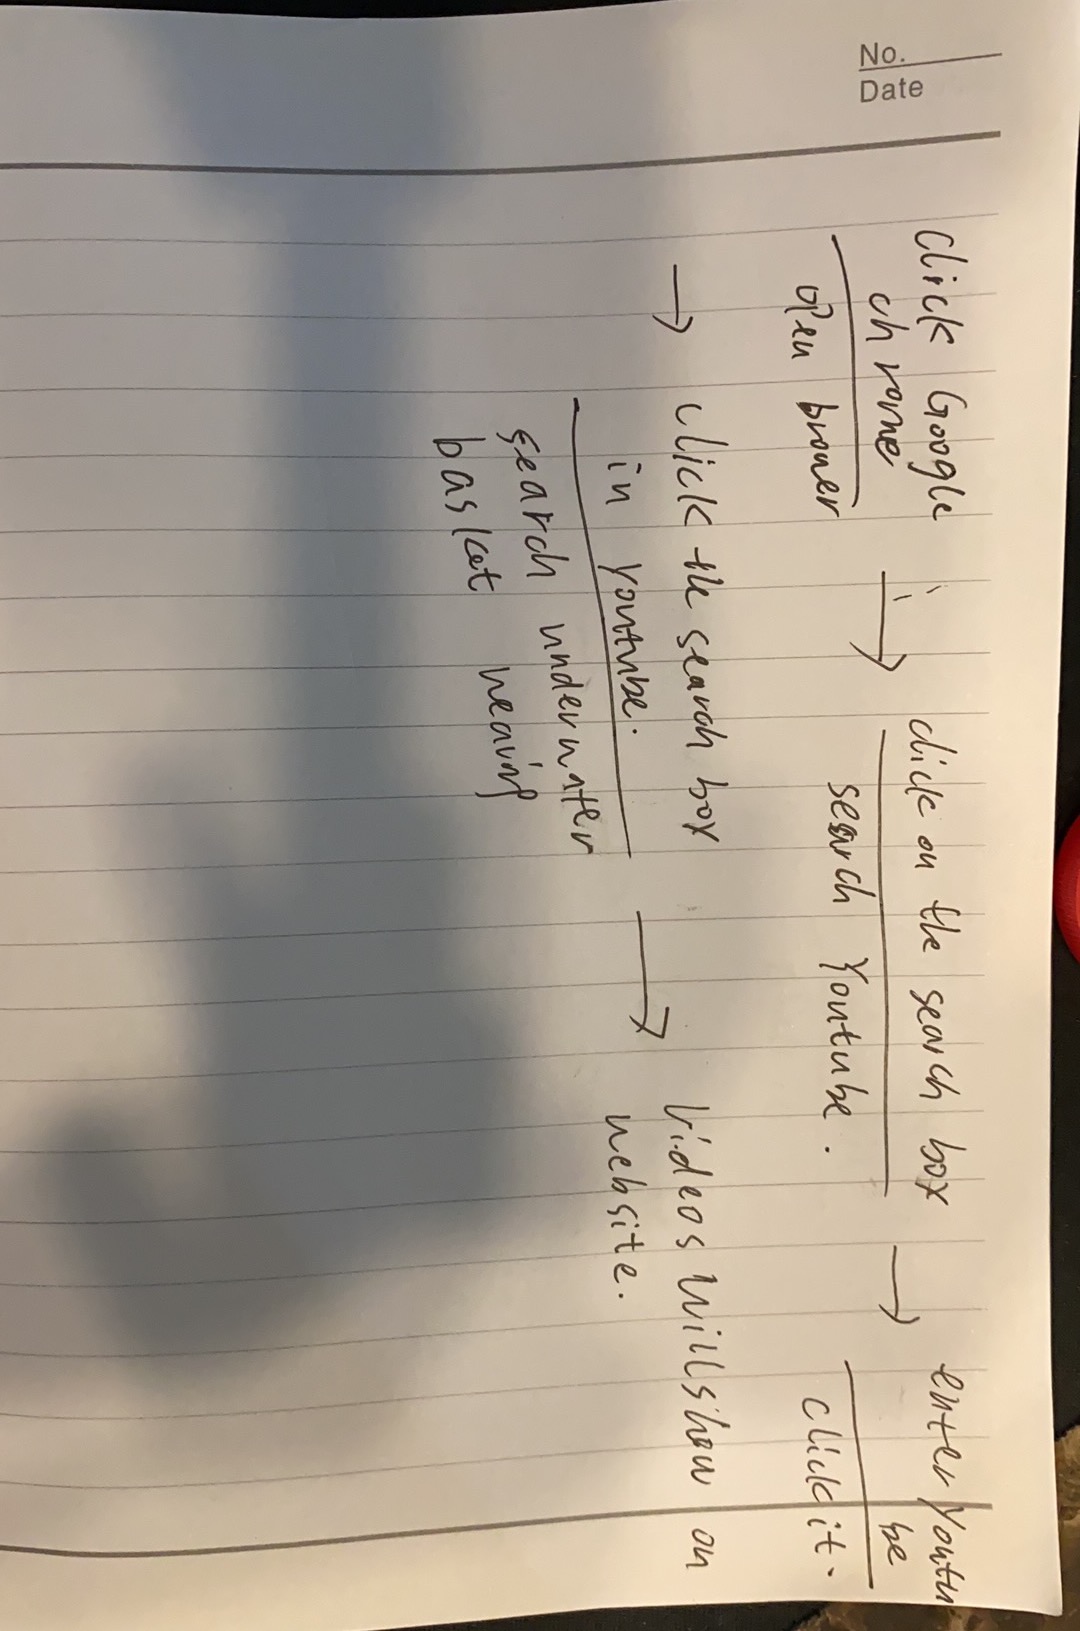 No.
Date
Click Google
chrome
open brower
→
click on the search box
search Youtube.
→
enter Youtu
be
click it.
→ click the search box
in youtube.
search underwater
basket weaving
→
Videos will show on
website.